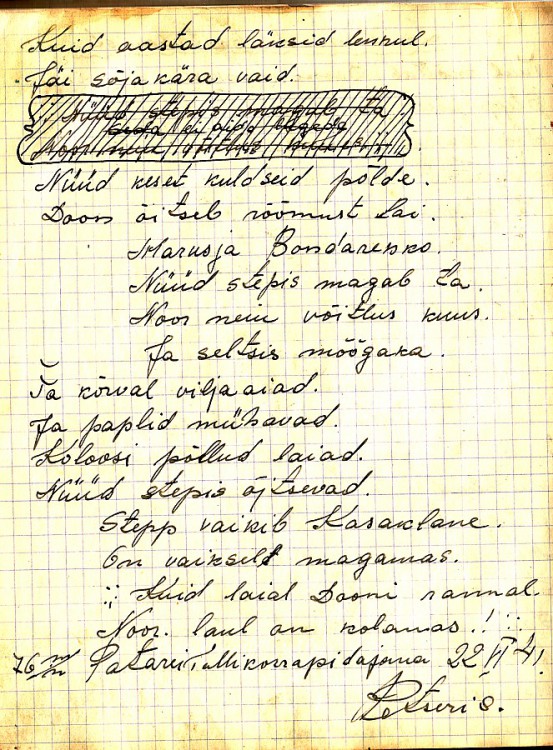 Kuid aastad läksid lennul.
Jäi sõja kära vaid.
Nüüd stepis magab ta
Nüüd keset kuldseid põlde.
Doon õitseb rõõmust lai.
Marusja Bondarenko.
Nüüd stepis magab ta.
Noor neiu võitlus kuus.
Ja seltsis mõõgaka.
Ta kõrval viljaaiad.
Ja paplid mühavad.
Koloosi põllud laiad.
Nüüd stepis õjtsevad.
Stepp vaikib Kasaklane.
On vaikselt magamas.
:: Kuid laial Dooni rannal.
Noor. laul on kolamas.! ::
76 m/m Patarei Tullikorrapidajana 22 VI 41.